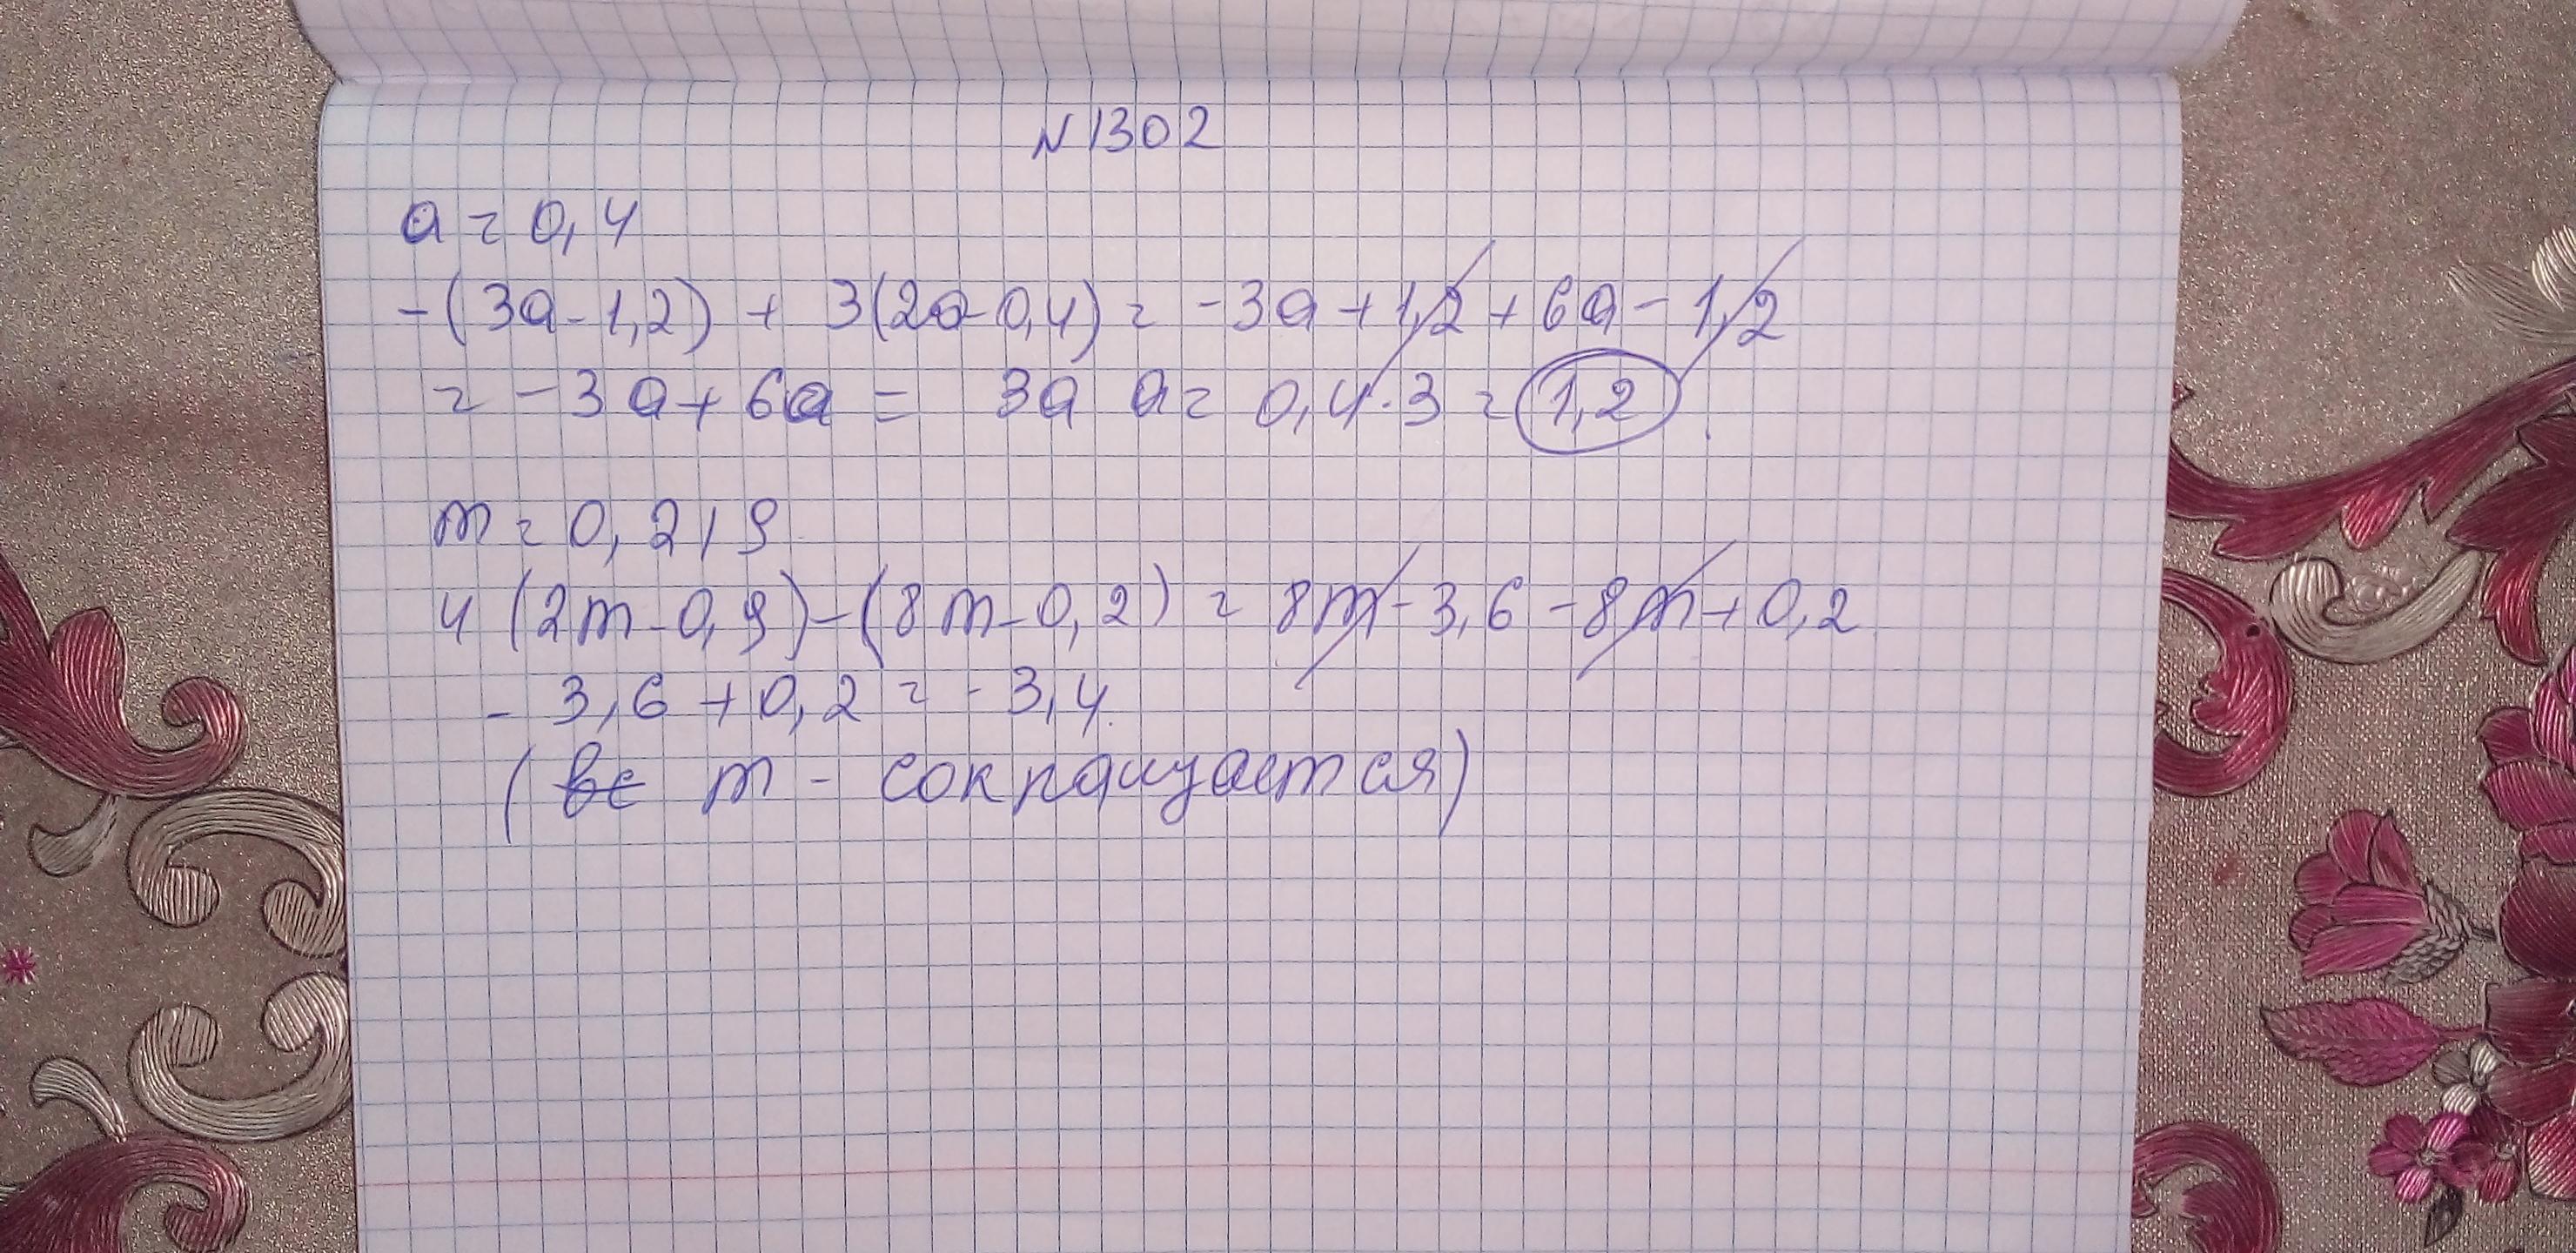 N 1302
a = 0,4
-(3a-1,2) + 3(2a-0,4) = -3a+1,2+6a-1,2
= -3a+6a = 3a a = 0,4·3 = 1,2
m = 0,219
4(2m-0,9)-(8m-0,2) = 8m-3,6-8m+0,2
-3,6+0,2 = -3,4
(вс m - сокращается)